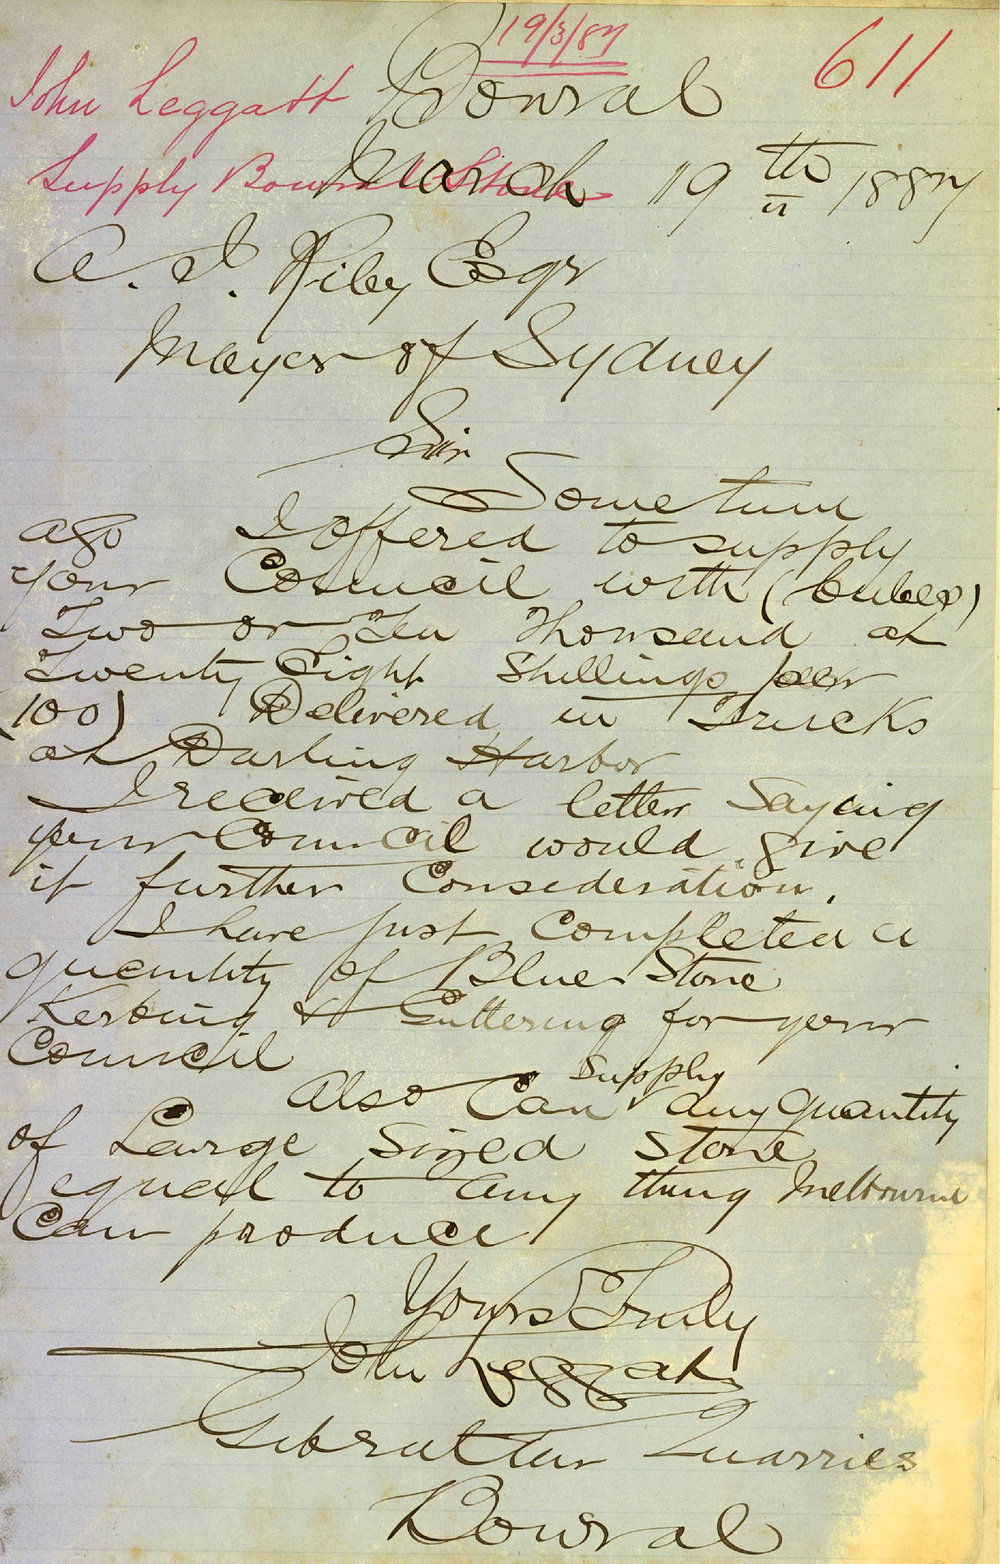 19/3/87
611
John Leggatt
Supply Bowral Stone
Bowral
March 19th 1887
A. J. Riley Esqr
Mayor of Sydney
Sir
Some time
ago I offered to supply
your Council with (Cubes)
Two or Ten Thousand at
Twenty Eight Shillings per
(100) Delivered in Trucks
at Darling Harbor
I received a letter Saying
your Council would give
it further Consideration.
I have just Completed a
quantity of Blue Stone
Kerbing & Guttering for your
Council
Also Can Supply any Quantity
of Large Sized Stone
equal to any thing Melbourne
Can produce
Yours Truly
John Leggatt
Gibralter Quarries
Bowral